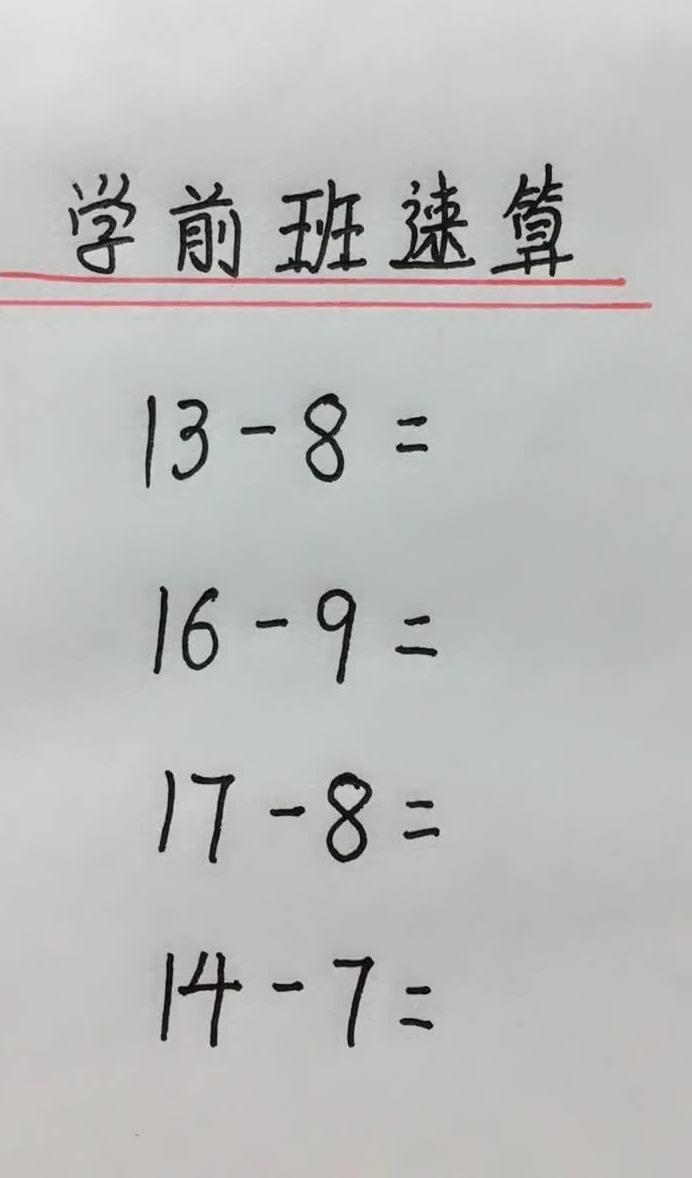 学前班速算
13-8=
16-9=
17-8=
14-7=